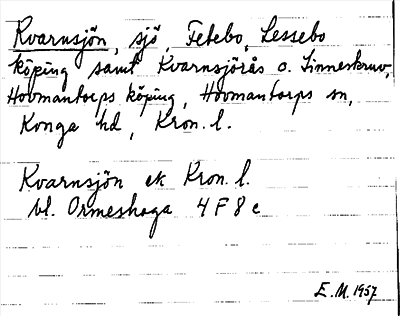 Kvarnsjön, sjö, Fetebo, Lessebo
köping samt Kvarnsjörås o. Linneskruv,
Hovmantorps köping, Hovmantorps sn,
Konga hd, Kron. l.
Kvarnsjön ek Kron. l.
bl. Ormeshaga 4 F 8 c
E.M. 1957